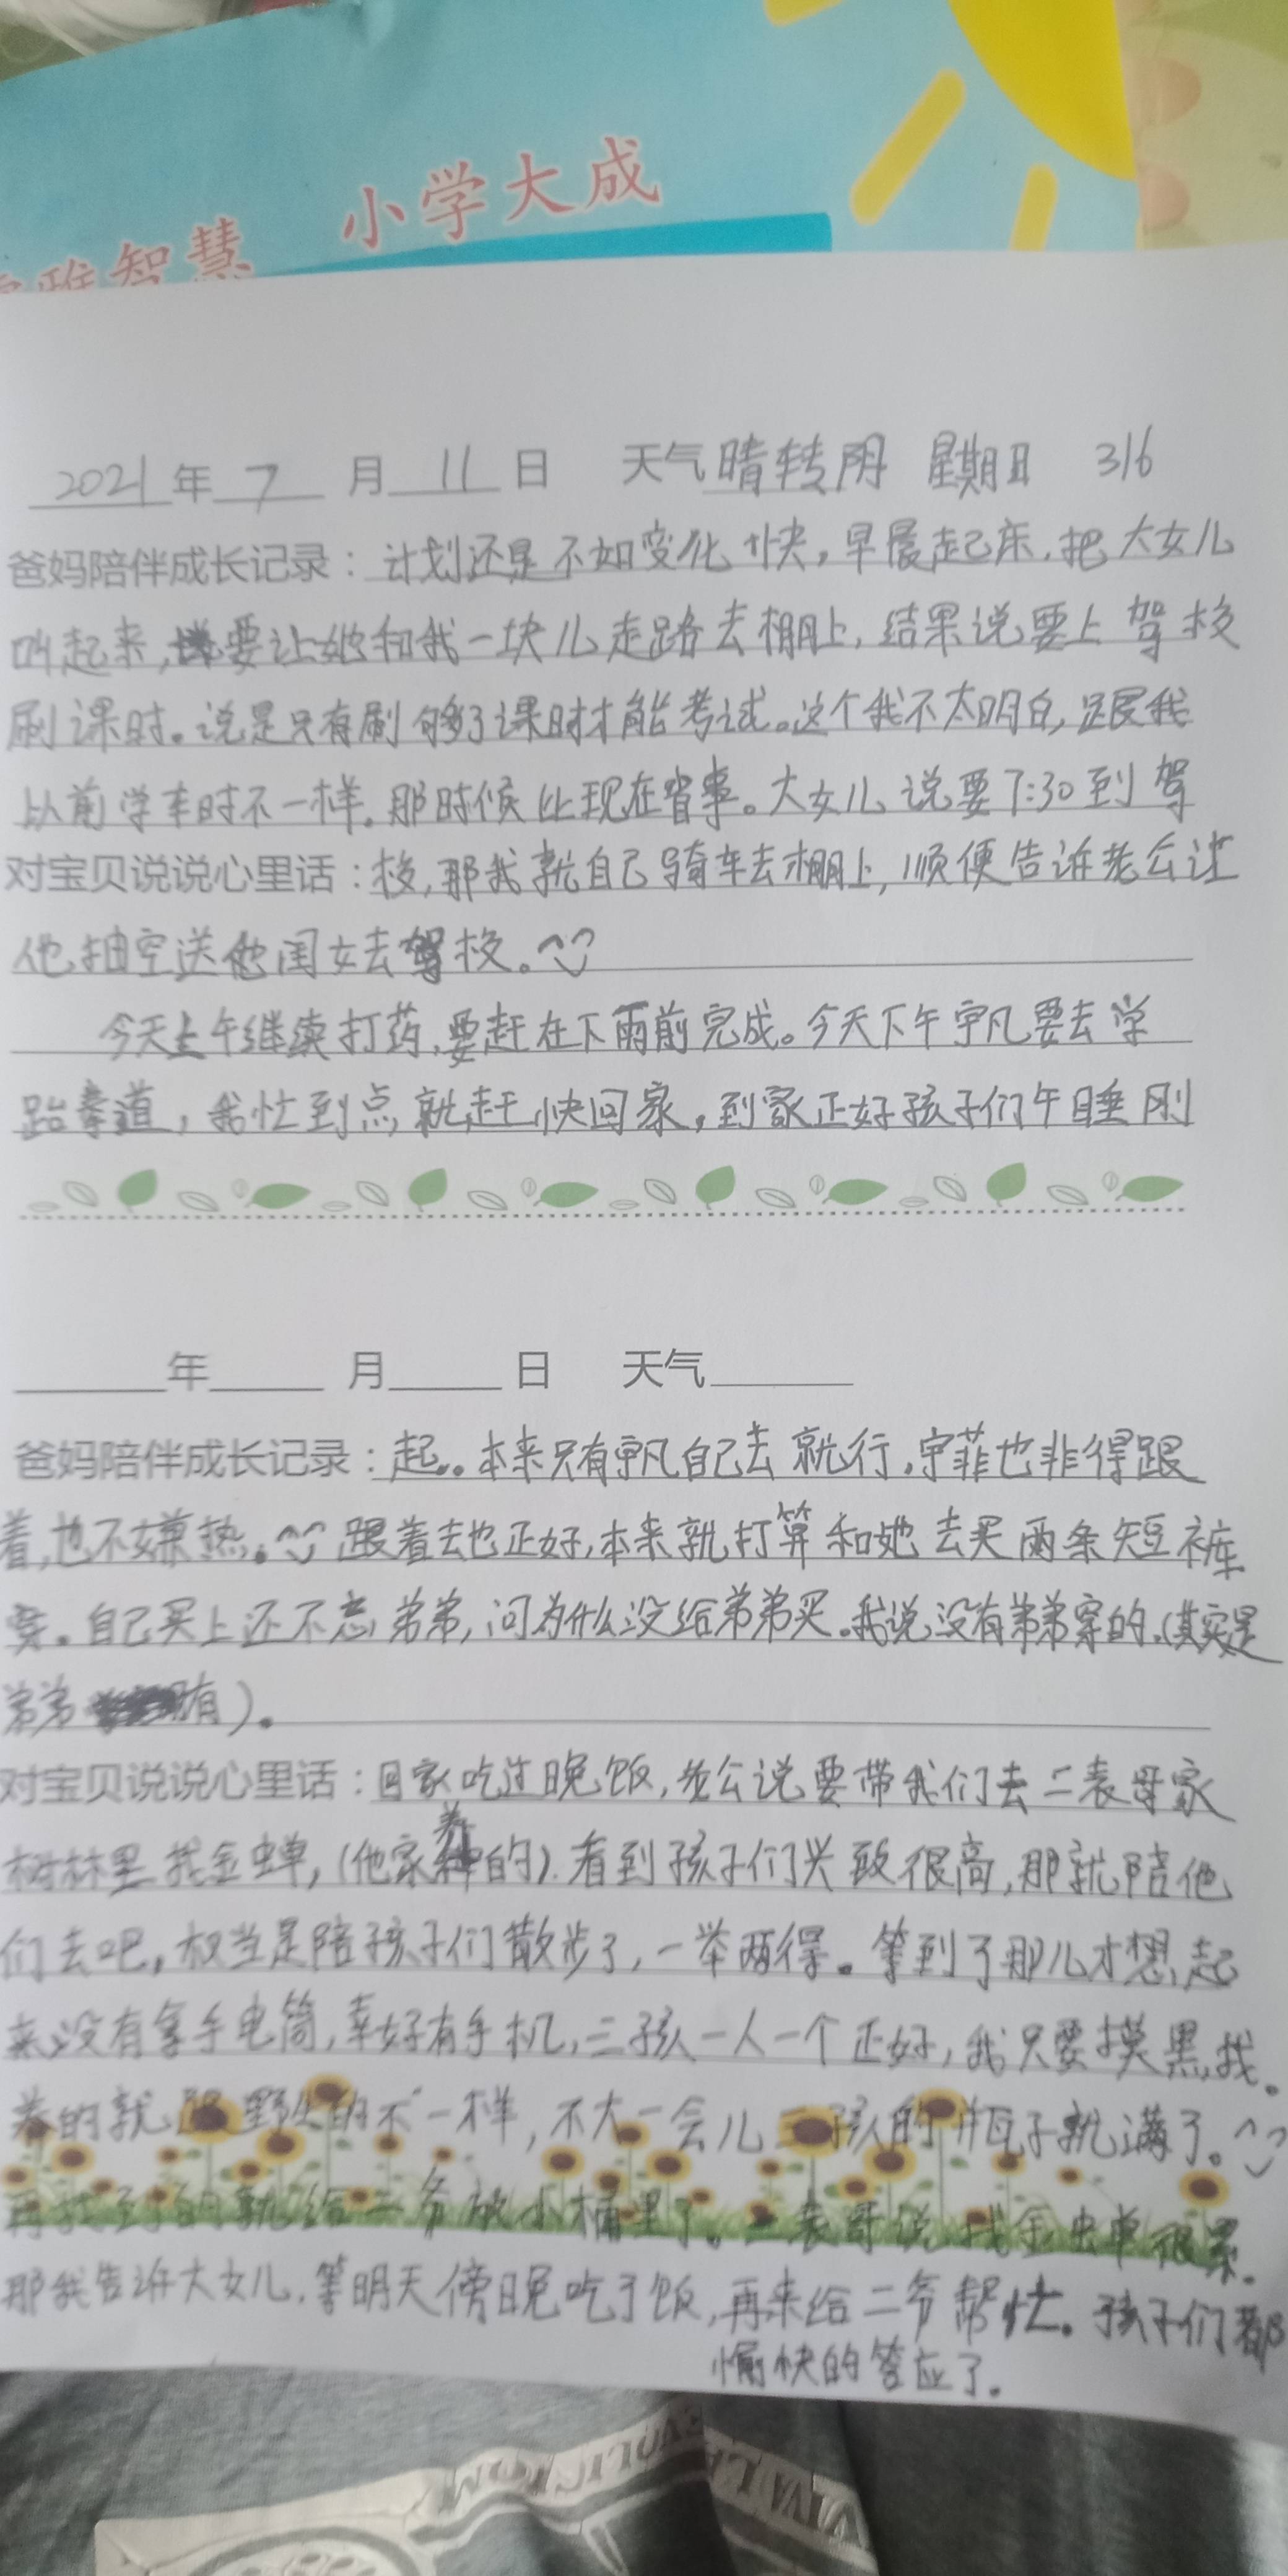 小学大成
智慧
2021年 7 月 11 日 天气 晴转阴 星期日 316
爸妈陪伴成长记录：计划还是不如变化快，早晨起床，把大女儿
叫起来，要让她和我一块儿走路去棚上，结果说要上驾校
刷课时。说是只有刷够了课时才能考试。这个我不太明白，跟我
以前学车时不一样。那时候比现在省事。大女儿说要7:30到驾
对宝贝说说心里话：校，那我就自己骑车去棚上，顺便告诉老公让
他抽空送他闺女去驾校。
今天上午继续打药，要赶在下雨前完成。今天下午宇凡要去学
跆拳道，我忙到点就赶快回家，到家正好孩子们午睡刚
年 月 日 天气
爸妈陪伴成长记录：起。。本来只有宇凡自己去就行，宇菲也非得跟
着，也不嫌热。跟着去也正好，本来就打算和她去买两条短裤
穿。自己买上还不忘弟弟，问为什么没给弟弟买。我说没有弟弟穿的，（其实是
弟弟有）。
对宝贝说说心里话：回家吃过晚饭，老公说要带我们去二表哥家
树林里找金蝉，（他家养的）.看到孩子们兴致很高，那就陪他
们去吧，权当是陪孩子们散步了，一举两得。等到了那儿才想起
来没有拿手电筒，幸好有手机，三孩一人一个正好，我只要摸黑找。
养的就跟野生的不一样，不大一会儿三孩的瓶子就满了。
再找到的就给二爷放小桶里了。二表哥说找金蝉很累.
那我告诉大女儿，等明天傍晚吃了饭，再来给二爷帮忙。孩子们都
愉快的答应了。